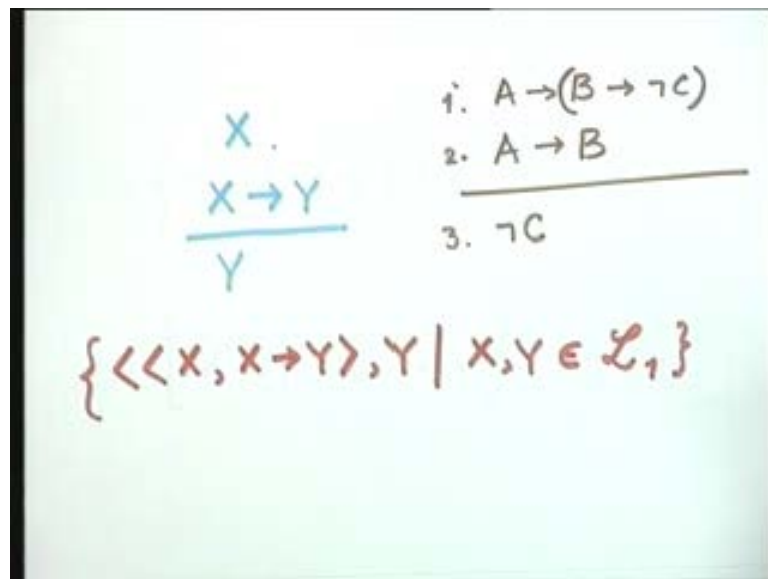 X .
X → Y
Y
1. A → (B → ¬C)
2. A → B
3. ¬C
{<<X, X→Y>, Y | X, Y ∈ ℒ₁}